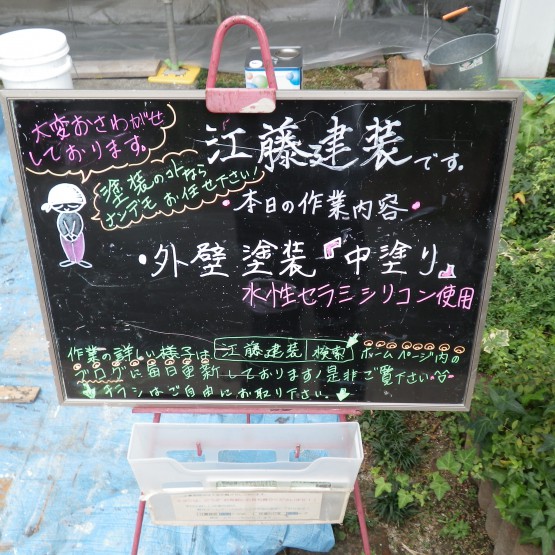 大変おさわがせ
しております。
江藤建装です。
塗装の事なら
ナンデモお任せ下さい!
本日の作業内容
・外壁塗装『中塗り』
水性セラミシリコン使用
作業の詳しい様子は 江藤建装 検索 ホームページ内の
ブログに毎日更新しております!是非ご覧下さい
チラシはご自由にお取り下さい。